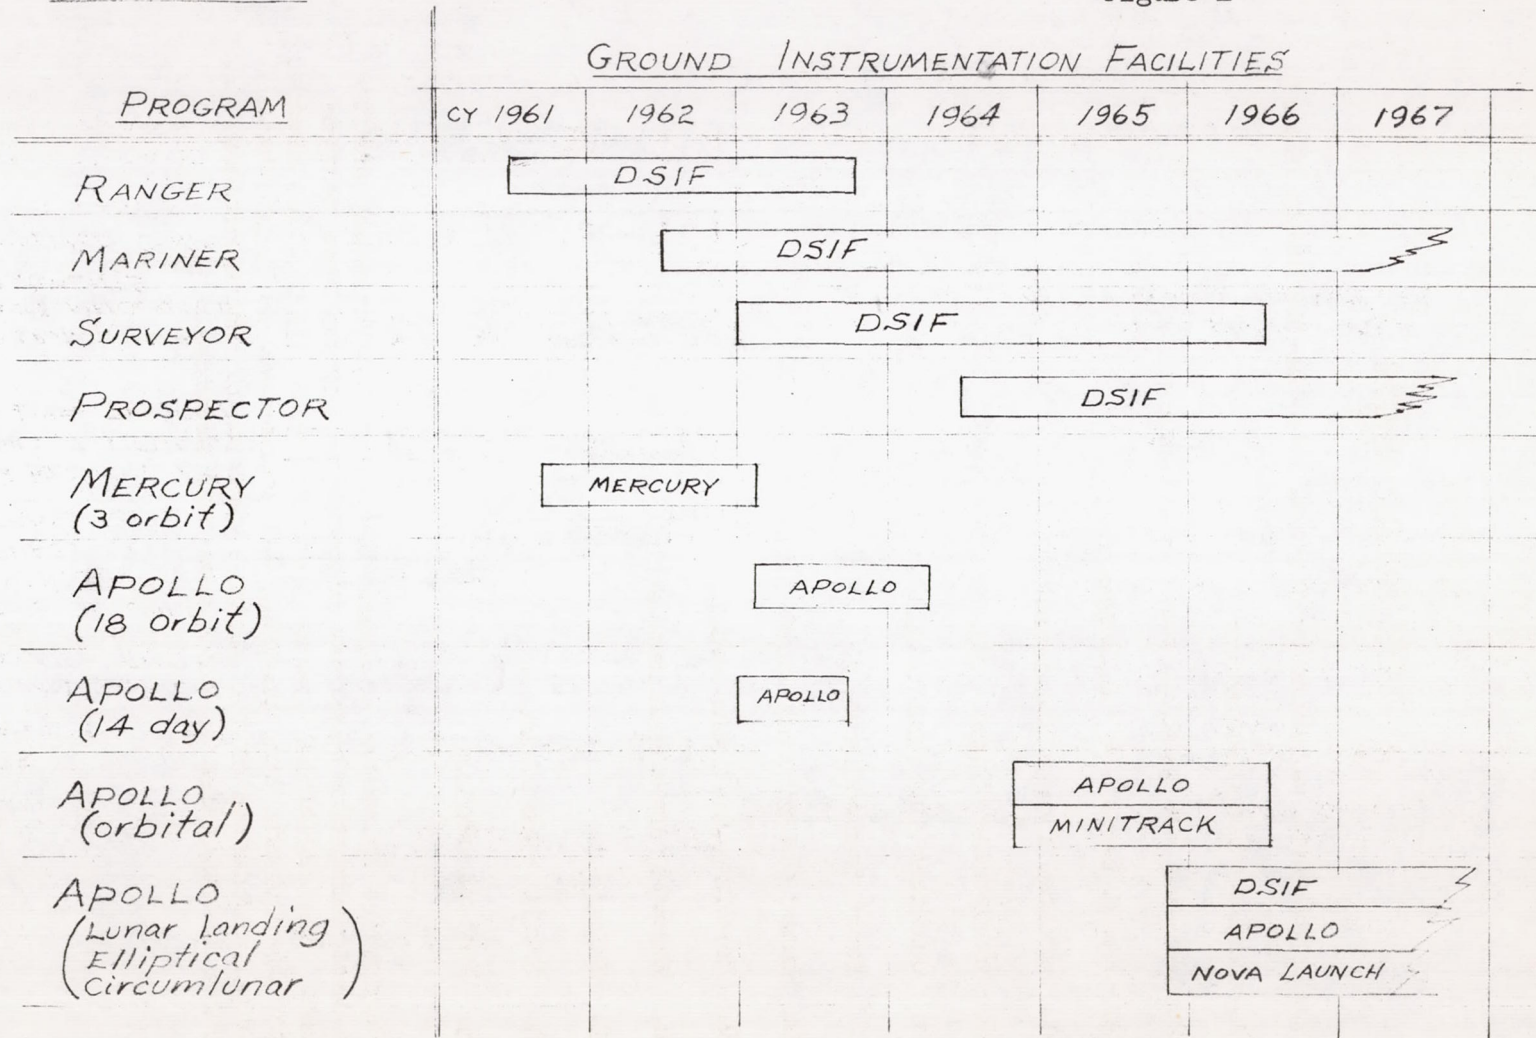 GROUND INSTRUMENTATION FACILITIES
PROGRAM CY 1961 1962 1963 1964 1965 1966 1967
RANGER DSIF
MARINER DSIF
SURVEYOR DSIF
PROSPECTOR DSIF
MERCURY MERCURY
(3 orbit)
APOLLO APOLLO
(18 orbit)
APOLLO APOLLO
(14 day)
APOLLO APOLLO
(orbital) MINITRACK
APOLLO DSIF
(Lunar landing APOLLO
Elliptical
Circumlunar) NOVA LAUNCH